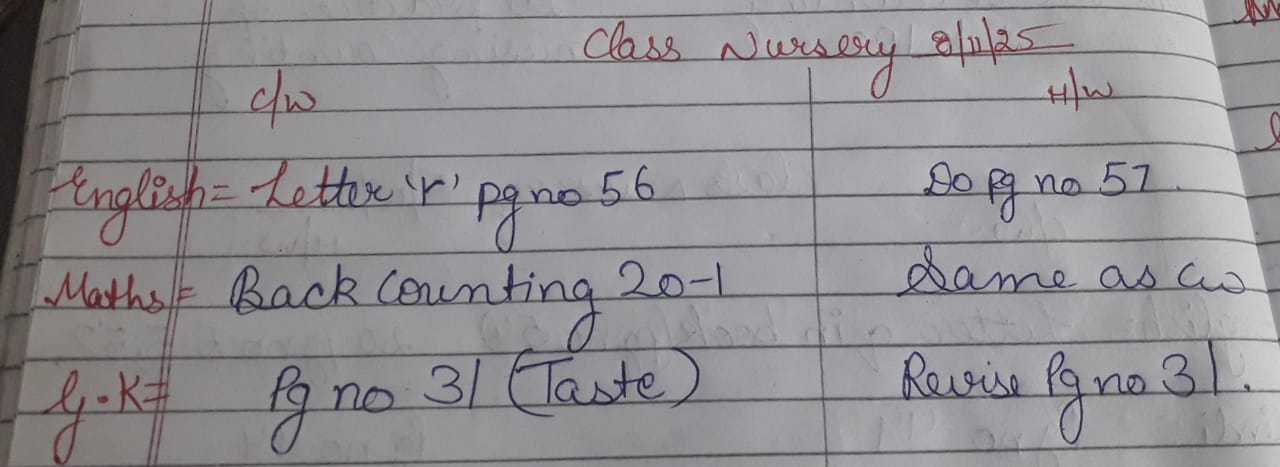 Class Nursery 8/11/25
C/W H/W
English = Letter 'r' pg no 56 Do pg no 57.
Maths = Back Counting 20-1 Same as cw
G.K = Pg no 31 (Taste) Revise Pg no 31.